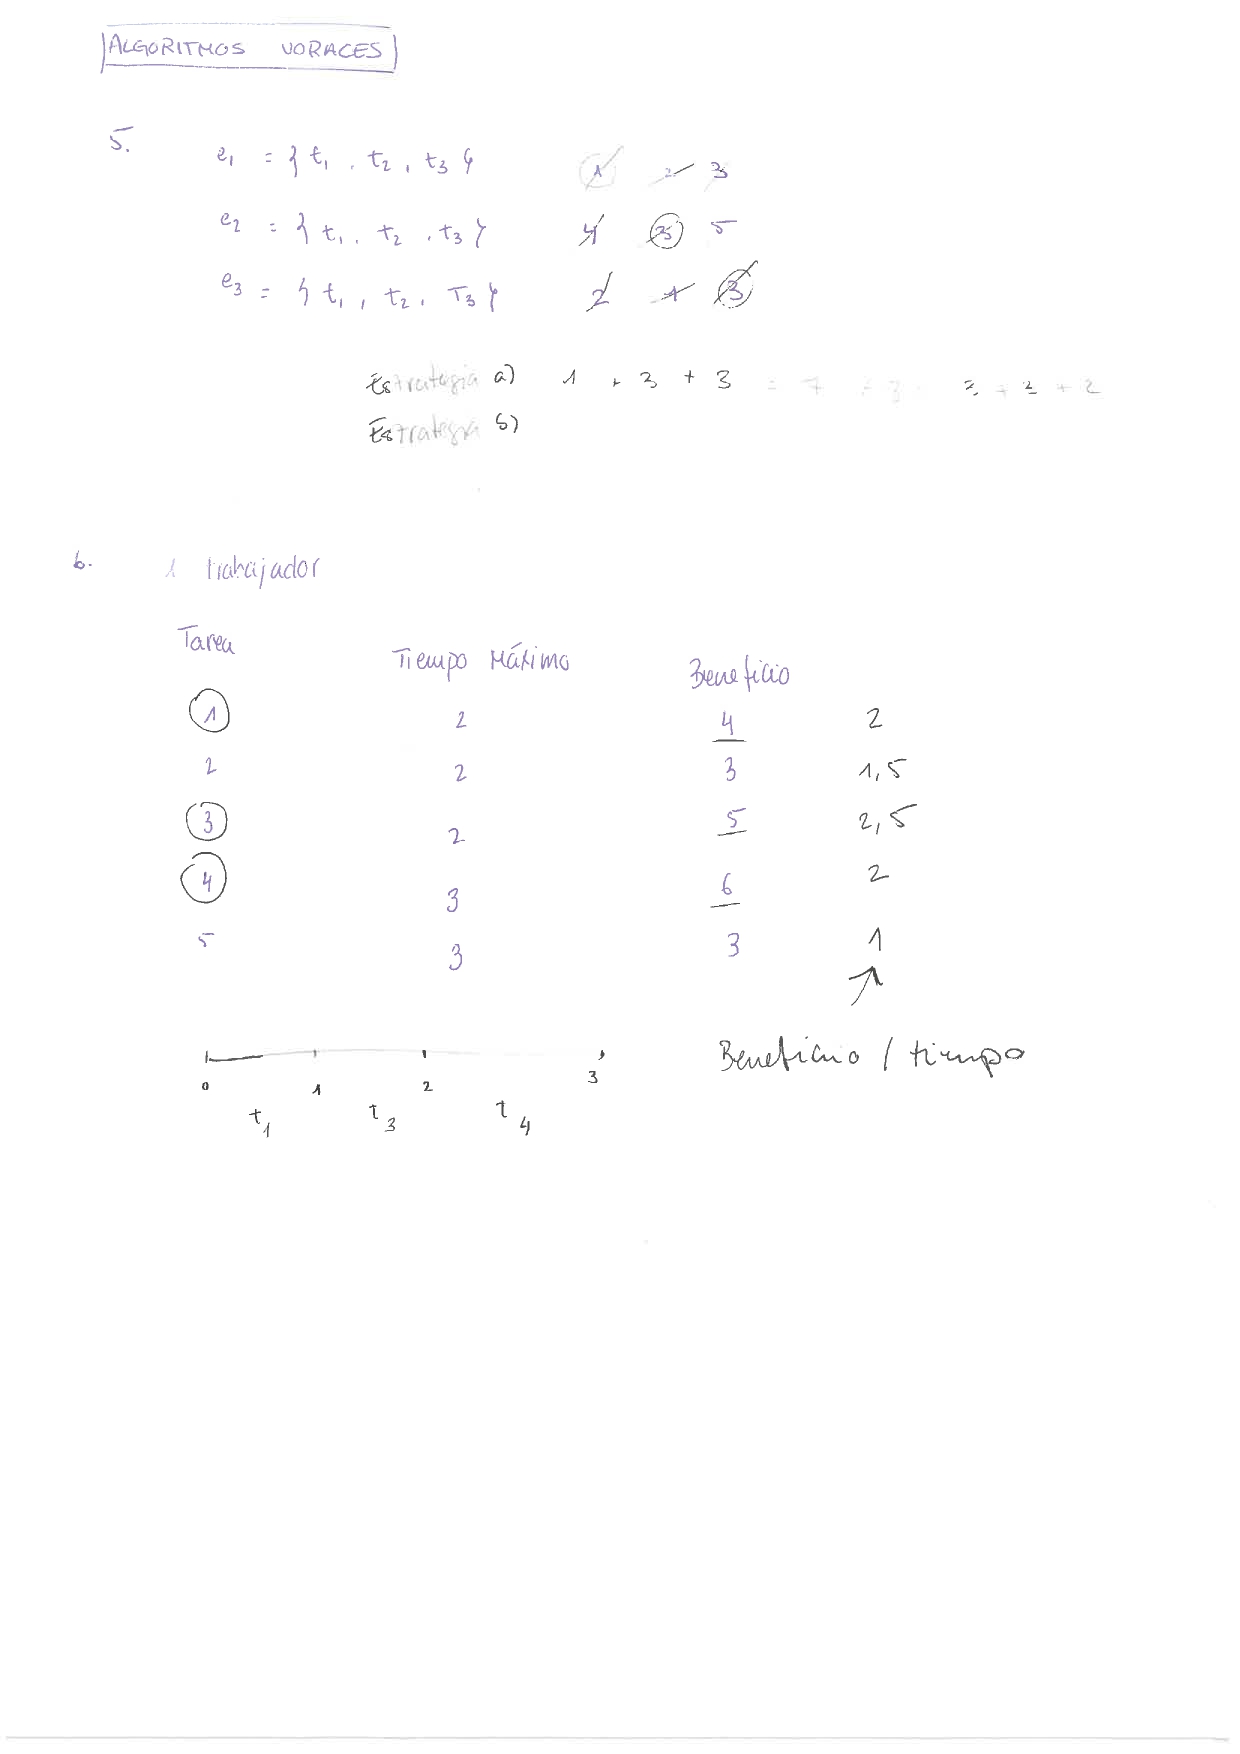 ALGORITMOS VORACES
5.
e1 = { t1, t2, t3 } 1 2 3
e2 = { t1, t2, t3 } 4 3 5
e3 = { t1, t2, T3 } 2 1 3
Estrategia a) 1 + 3 + 3 = 7 + 2 + 2
Estrategia b)
6. 1 trabajador
Tarea Tiempo Máximo Beneficio
1 2 4 2
2 2 3 1,5
3 2 5 2,5
4 3 6 2
5 3 3 1
0 1 2 3
t1 t3 t4
Beneficio / tiempo